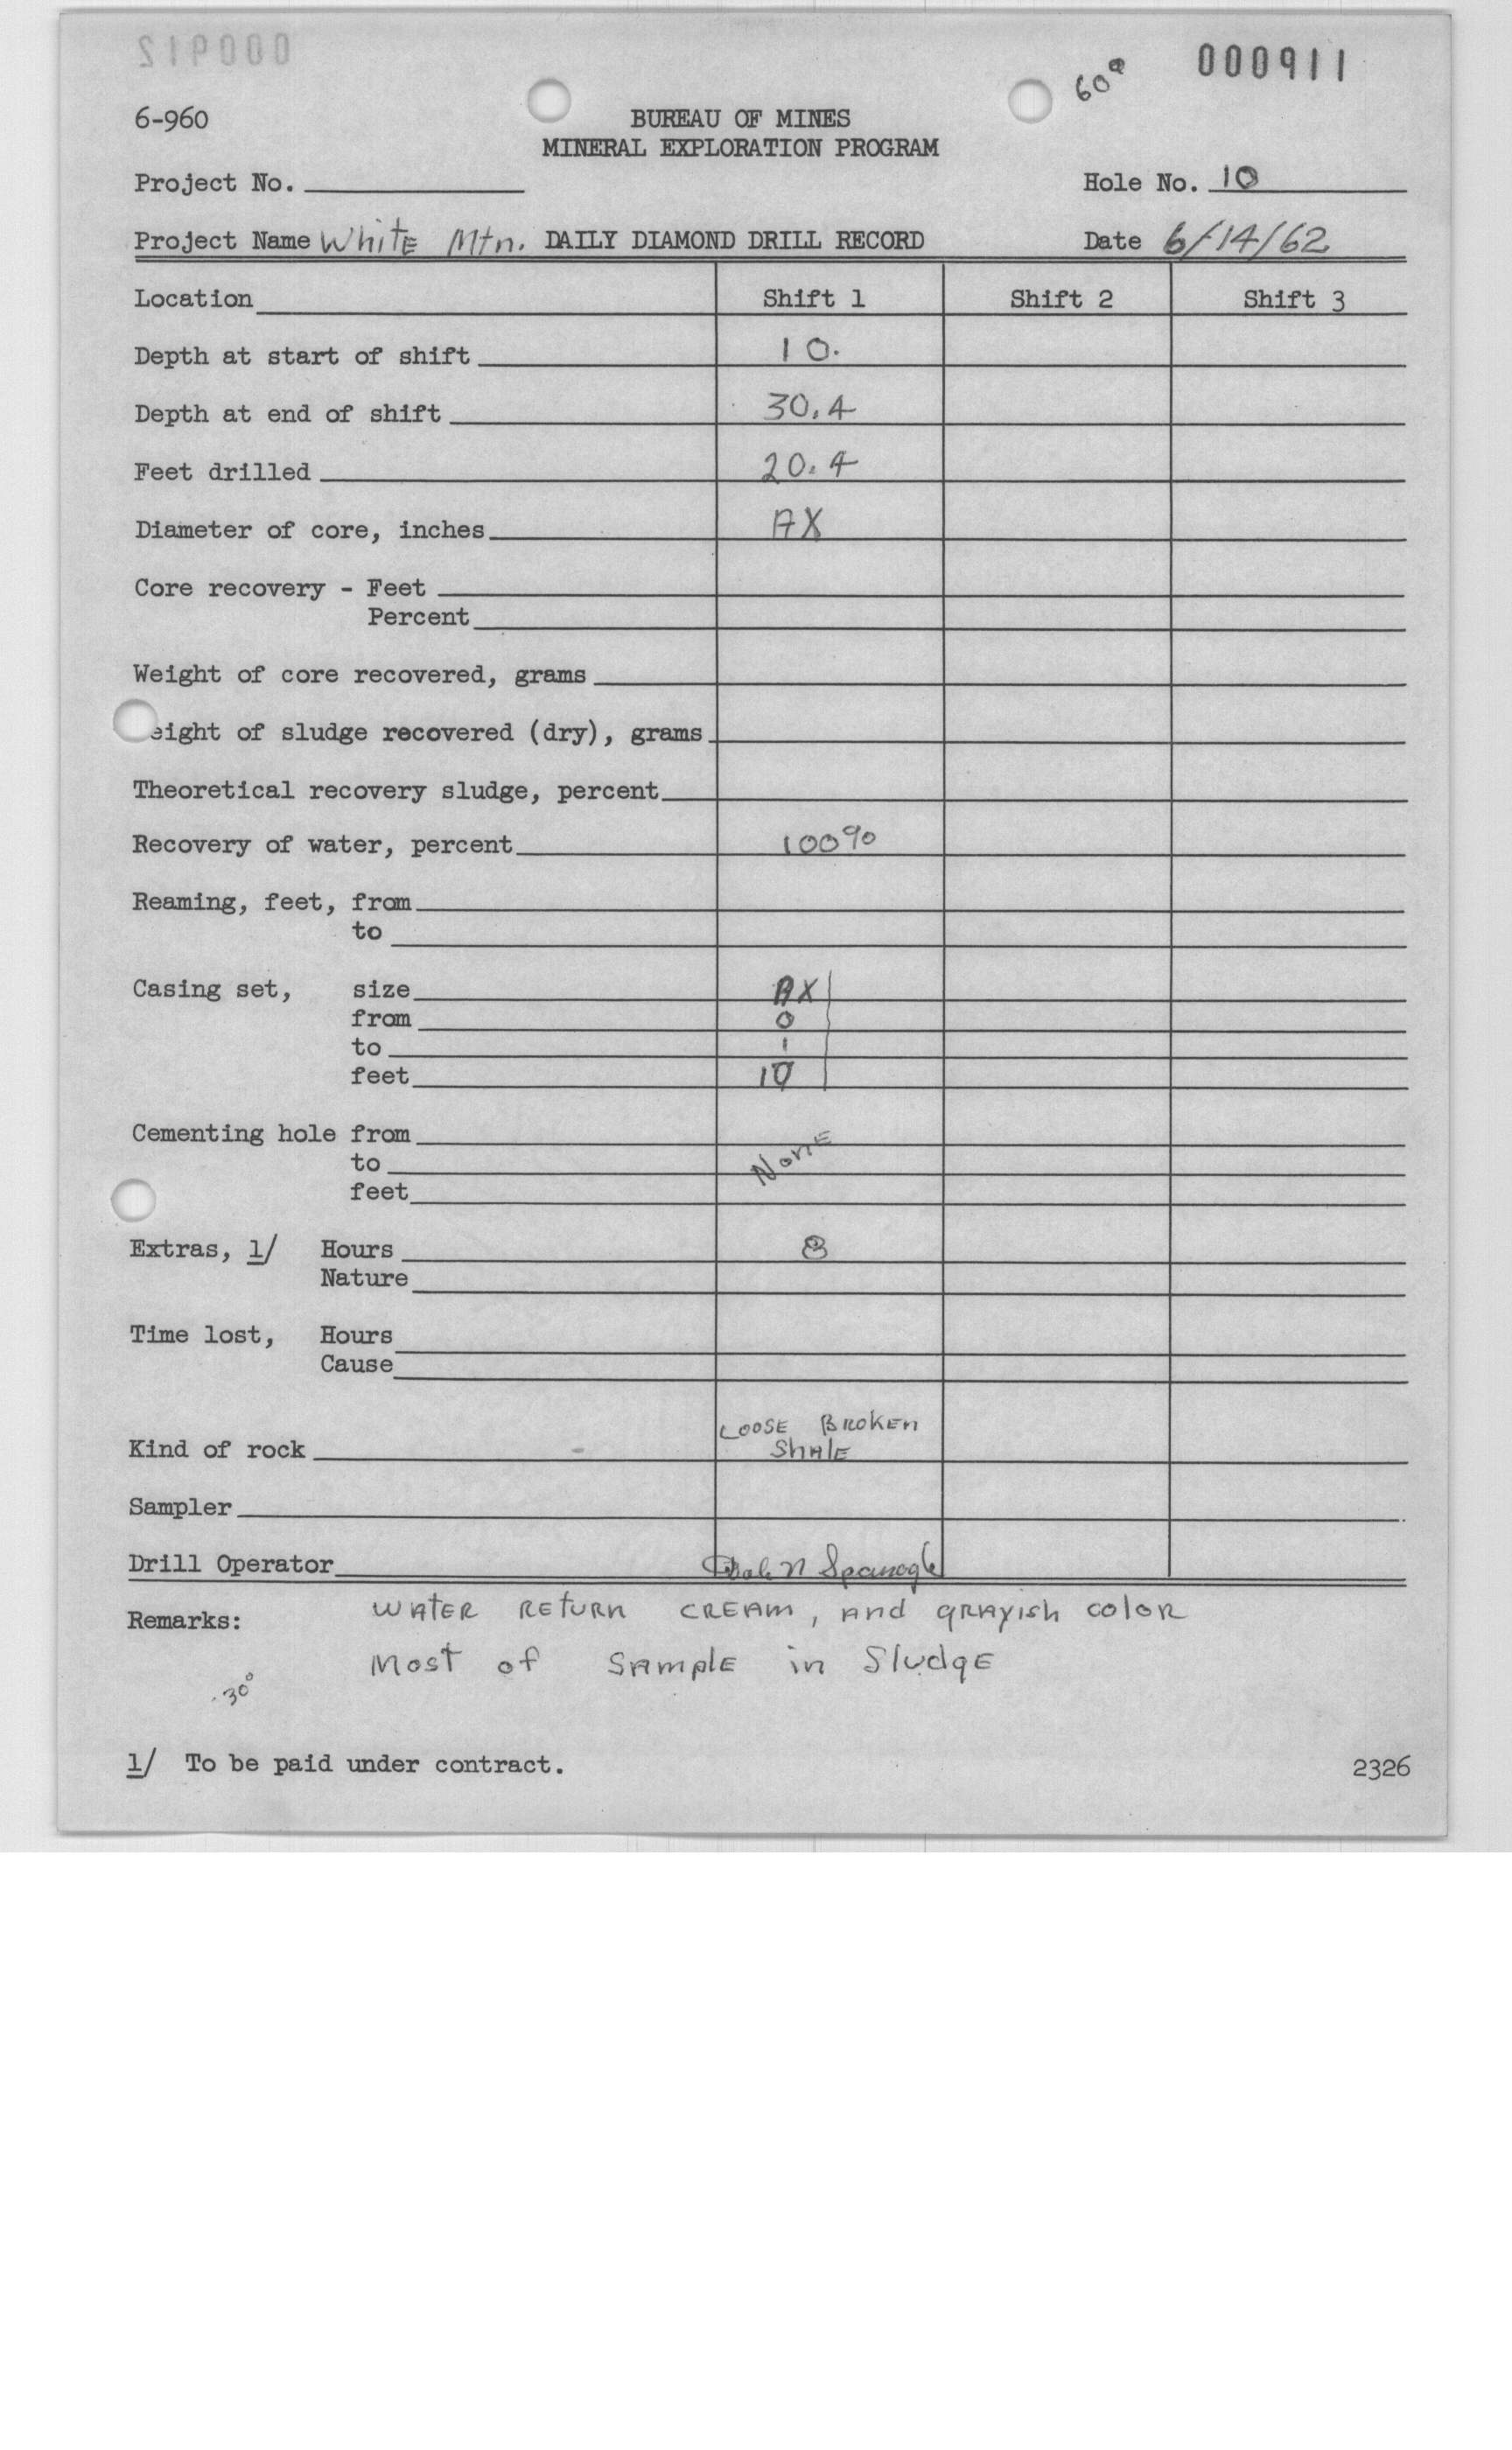 000911
60°
6-960
BUREAU OF MINES
MINERAL EXPLORATION PROGRAM
Project No.
Hole No. 10
Project Name WhitE Mtn. DAILY DIAMOND DRILL RECORD Date 6/14/62
Location Shift 1 Shift 2 Shift 3
Depth at start of shift 10.
Depth at end of shift 30.4
Feet drilled 20.4
Diameter of core, inches AX
Core recovery - Feet
Percent
Weight of core recovered, grams
eight of sludge recovered (dry), grams
Theoretical recovery sludge, percent
Recovery of water, percent 100%
Reaming, feet, from
to
Casing set, size AX
from 0
to 1
feet 10
Cementing hole from
to NonE
feet
Extras, 1/ Hours 8
Nature
Time lost, Hours
Cause
LOOSE BROKEn
Kind of rock ShAlE
Sampler
Drill Operator Dale N Spanogle
Remarks: WATER RETURN CREAM, And gRAYish coloR
Most of SAmplE in SludgE
30°
1/ To be paid under contract.
2326